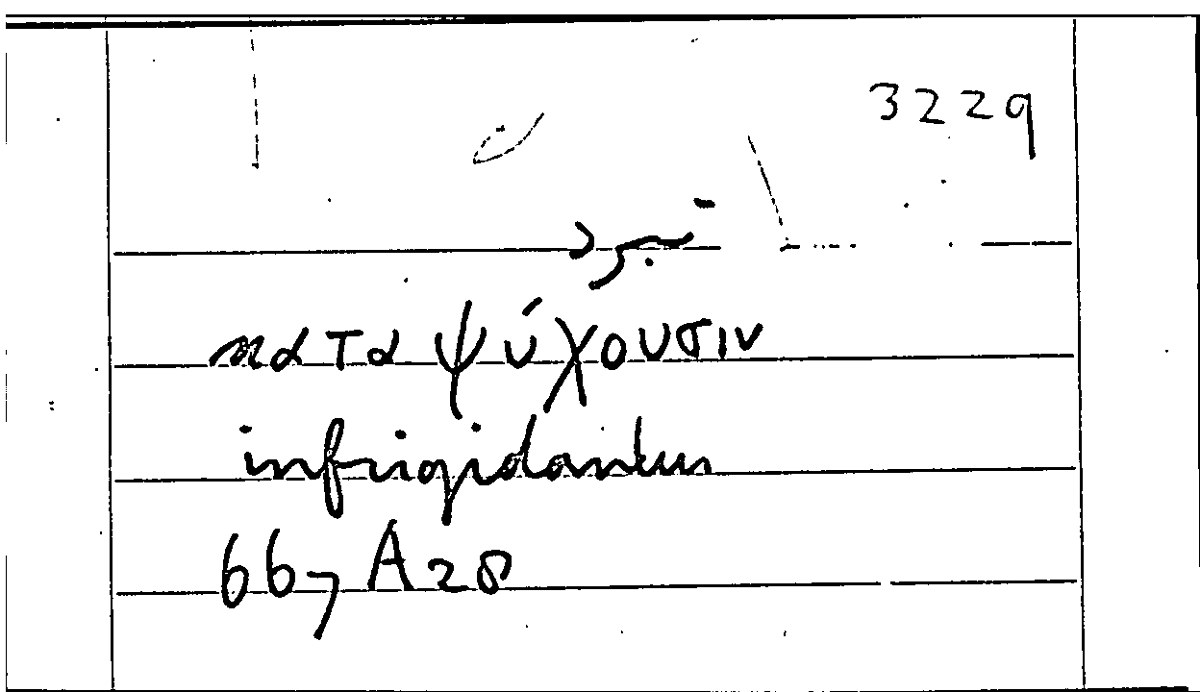 3229
تبرد
καταψύχουσιν
infrigidantur
667 A28